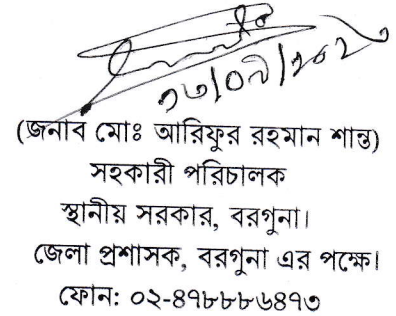 (জনাব মোঃ আরিফুর রহমান শান্ত)
সহকারী পরিচালক
স্থানীয় সরকার, বরগুনা।
জেলা প্রশাসক, বরগুনা এর পক্ষে।
ফোন: ০২-৪৭৮৮৮৬৪৭৩